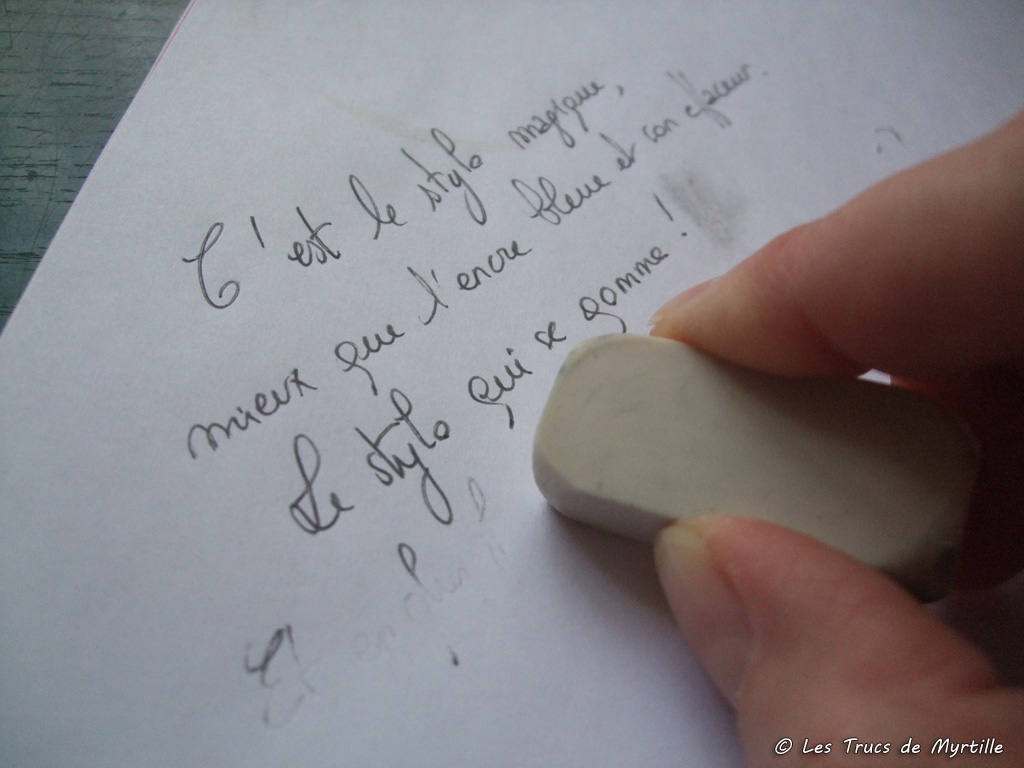 C'est le stylo magique,
mieux que l'encre bleue et son effaceur.
Le stylo qui se gomme !
© Les Trucs de Myrtille